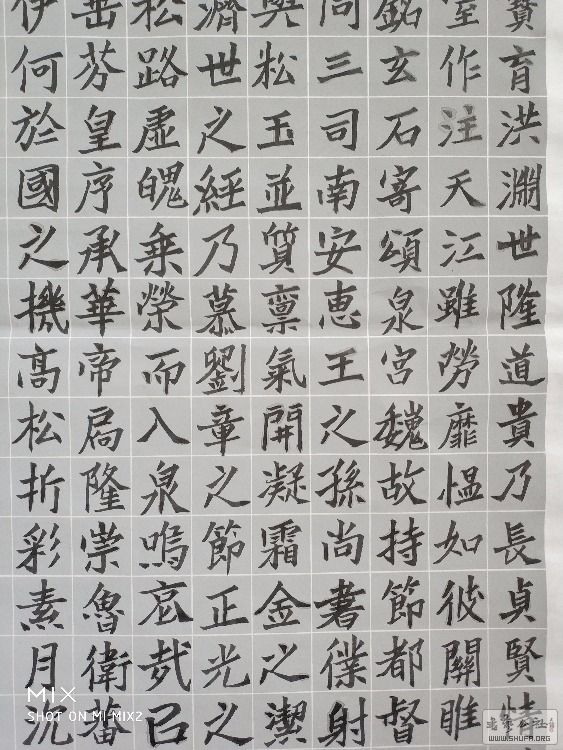 贊育洪淵世隆道貴乃長貞賢情
室作注天江雖勞靡愠如彼關雎
銘玄石寄頌泉宮魏故持節都督
同三司南安惠王之孫尚書僕射
與松玉並質稟氣開凝霜金之潔
濟世之經乃慕劉章之節正光之
松路虛魄乘榮而入泉嗚哀哉已
岳芬皇序承華帝扃隆崇魯衛蕃
伊何於國之機高松折彩素月沉
MIX
SHOT ON MI MIX2
WWW.SHUFA.ORG